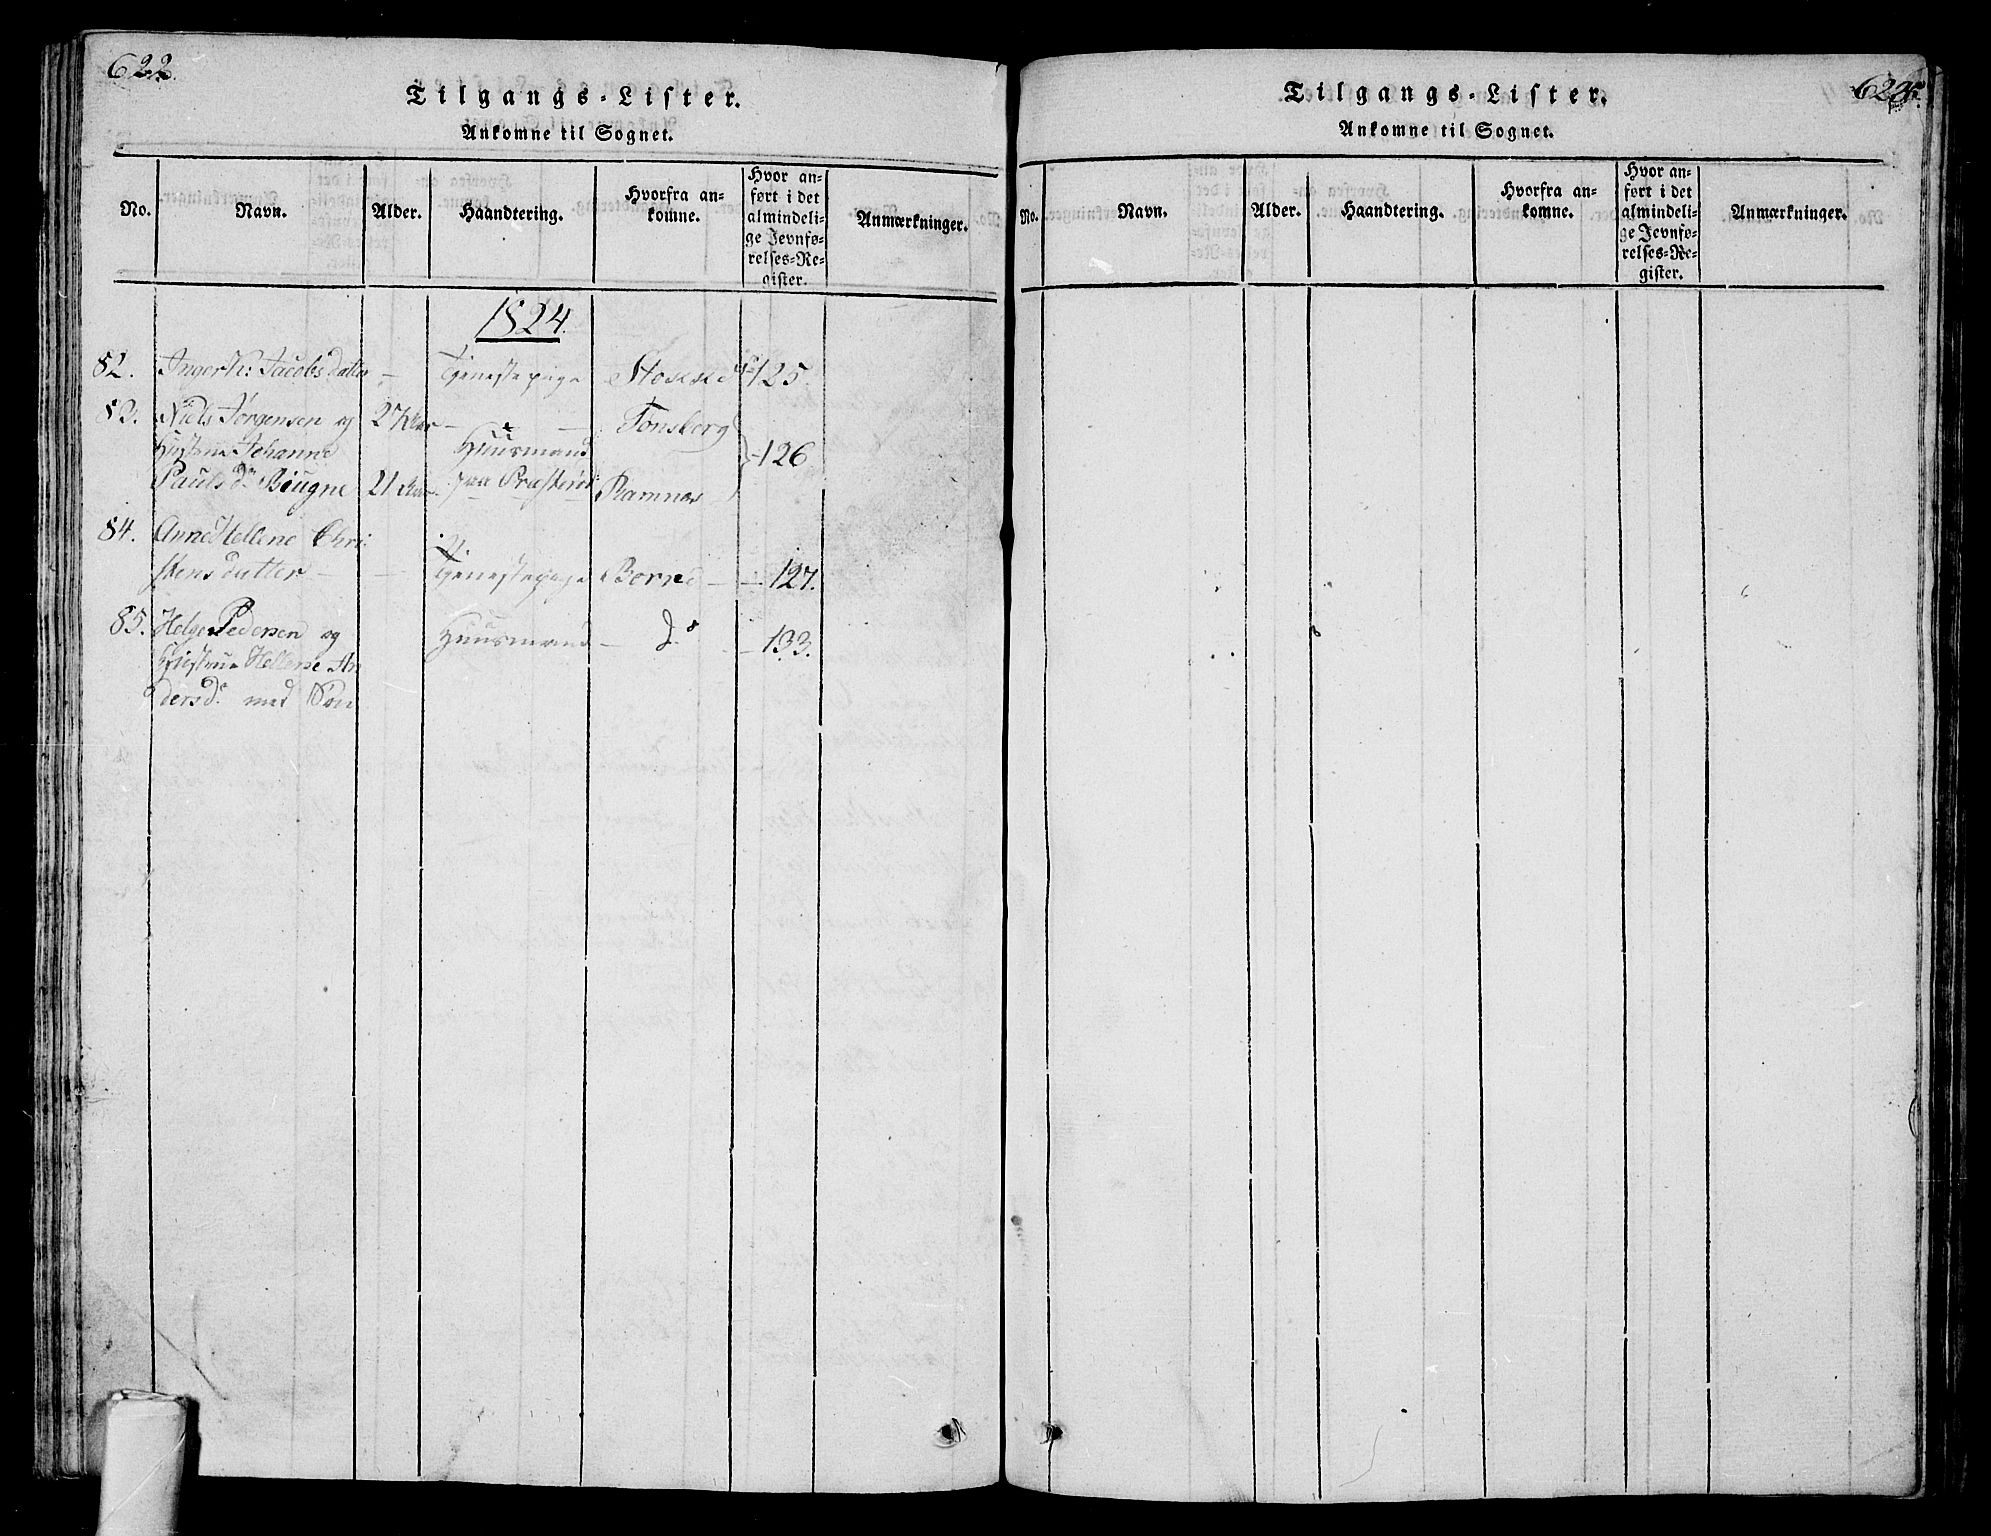 622.
Tilgangs-Lister.
Ankomne til Sognet.
No. Navn. Alder. Haandtering. Hvorfra ankomne. Hvor anført i det almindelige Jevnførelses-Register. Anmærkninger.
1824.
82. Ingerth: Jacobsdatter – Tjenestepige Stokke 125.
83. Niels Jørgensen og 27 Aar – – Tønsberg
Hustrue Johanne Huusmand 126
Pauls D. Biugne 21 Aar Ramnæs
84. Anne Hellene Chri-
stensdatter – – Tjenestepige Borre – – 127.
85. Helge Pedersen og Huusmand – do – 133.
Hustrue Hellene An-
dersd. med Søn
Tilgangs-Lister.
Ankomne til Sognet.
No. Navn. Alder. Haandtering. Hvorfra ankomne. Hvor anført i det almindelige Jevnførelses-Register. Anmærkninger.